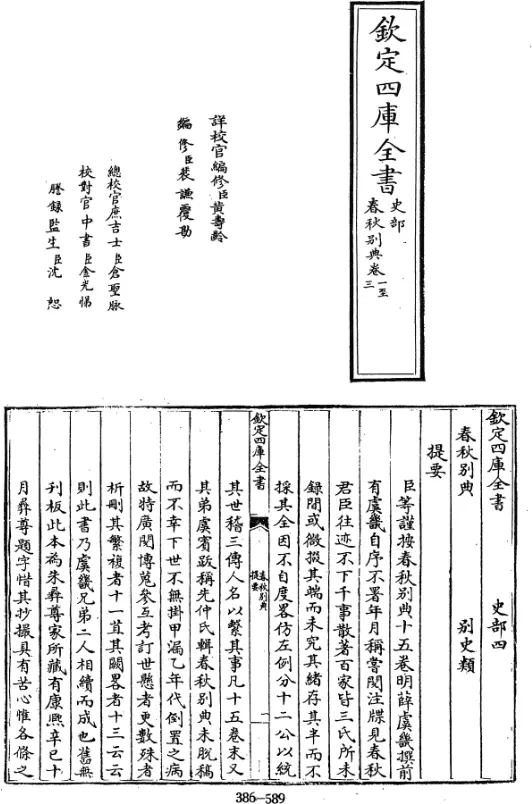 欽定四庫全書
史部
春秋別典卷一至三
詳校官編修臣黃壽齡
編修臣裴謙覆勘
總校官庶吉士臣倉聖脉
校對官中書臣金光悌
謄錄監生臣沈恕
欽定四庫全書 史部四
春秋別典 別史類
提要
臣等謹按春秋別典十五卷明薛虞畿撰前
有虞畿自序不署年月稱嘗閱注牒見春秋
君臣往迹不下千事散著百家皆三氏所未
錄間或微掇其端而未究其緒存其半而不
採其全因不自度畧仿左例分十二公以統
欽定四庫全書 春秋別典 提要 一
其世稽三傳人名以繫其事凡十五卷末又
其弟虞賓跋稱先仲氏輯春秋別典未脫稿
而不幸下世不無掛甲漏乙年代倒置之病
故特廣閱博蒐參互考訂世懸者更數殊者
析刪其繁複者十一苴其闕畧者十三云云
則此書乃虞畿兄弟二人相續而成也舊無
刊板此本為朱彛尊家所藏有康熙辛巳十
月彛尊題字惜其抄撮具有苦心惟各條之
386-589